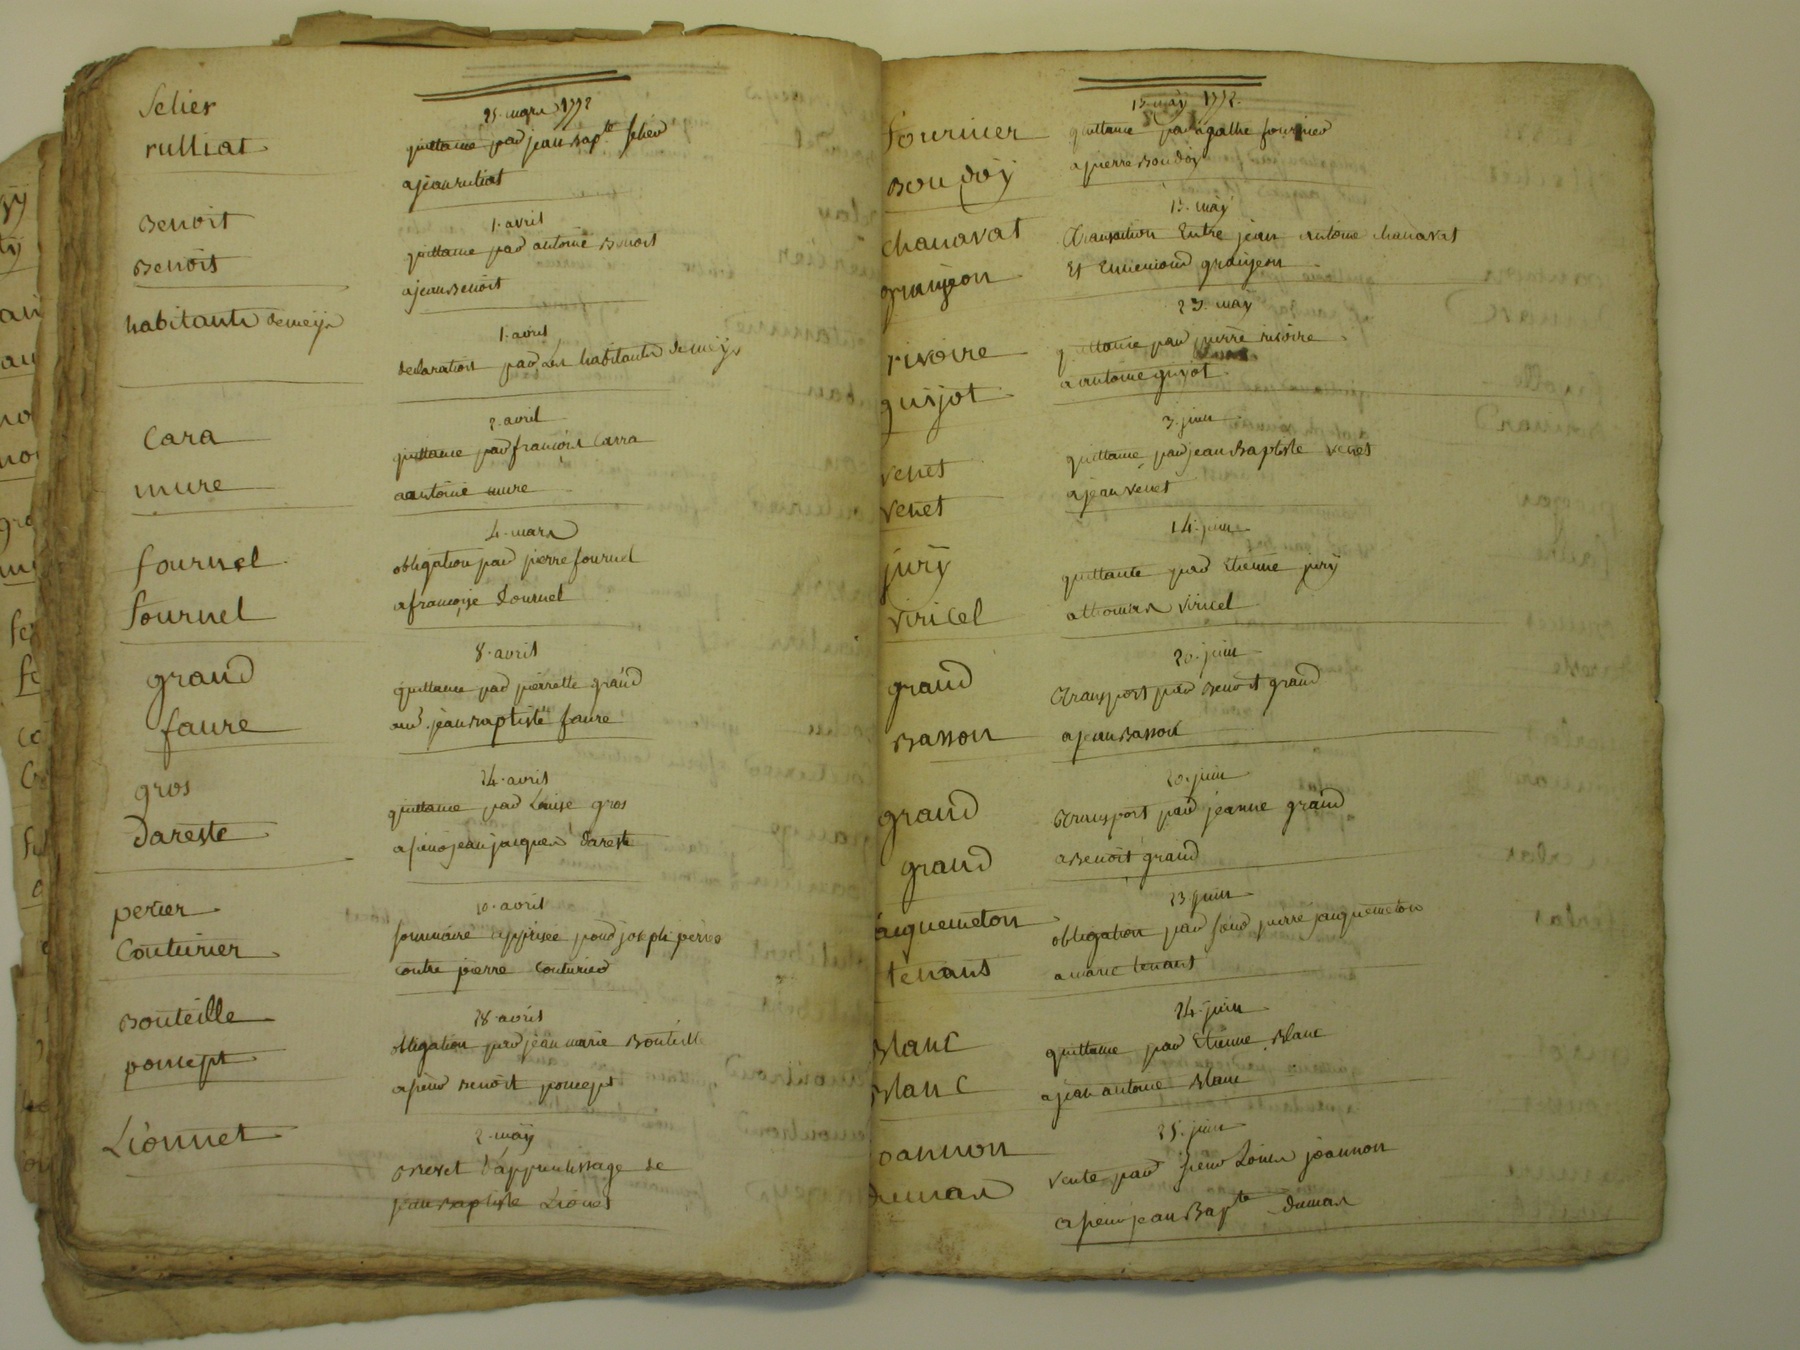 Selier
rulliat
25. mars 1772
quittance par jean Bapte Selier
a jean ruliat
Benoit
Benoit
1. avril
quittance par antoine Benoit
a jean Benoit
habitants de meys
1. avril
declaration par Les habitants de meys
Cara
mure
2. avril
quittance par françois Carra
a antoine mure
fournel
fournel
4. mars
obligation par pierre fournel
a françoise fournel
grand
faure
8. avril
quittance par pierrette grand
jean Baptiste faure
gros
Dareste
24. avril
quittance par Louise gros
a sieur jean jacques Dareste
perier
Couturier
10. avril
sommaire apprisée pour joseph perier
contre pierre Couturier
Bouteille
poncept
28. avril
obligation par jean marie Bouteille
a sieur Benoit poncept
Lionnet
2. may
Brevet d'apprentissage de
jean Baptiste Lionet
fournier
Boudoÿ
15. may 1772.
quittance par agathe fournier
a pierre Boudoÿ
Chanavat
grangeon
15. maÿ
Transaction Entre jean antoine chanavat
Et Ennemond grangeon
rivoire
guijot
23. may
quittance par pierre rivoire
a antoine guijot
venet
venet
3. juin
quittance par jean Baptiste venet
a jean venet
jurÿ
viricel
14. juin
quittance par Etienne jurÿ
a thomas viricel
grand
Basson
20. juin
Transport par Benoit grand
a jean Basson
grand
grand
20. juin
Transport par jeanne grand
a Benoit grand
aiquemeton
tenant
23. juin
obligation par sieur pierre jaiquemeton
a marie tenant
Blanc
Blanc
24. juin
quittance par Etienne Blanc
a jean antoine Blanc
oannon
dumas
25. juin
vente par sieur Louis joannon
a sieur jean Bapte dumas